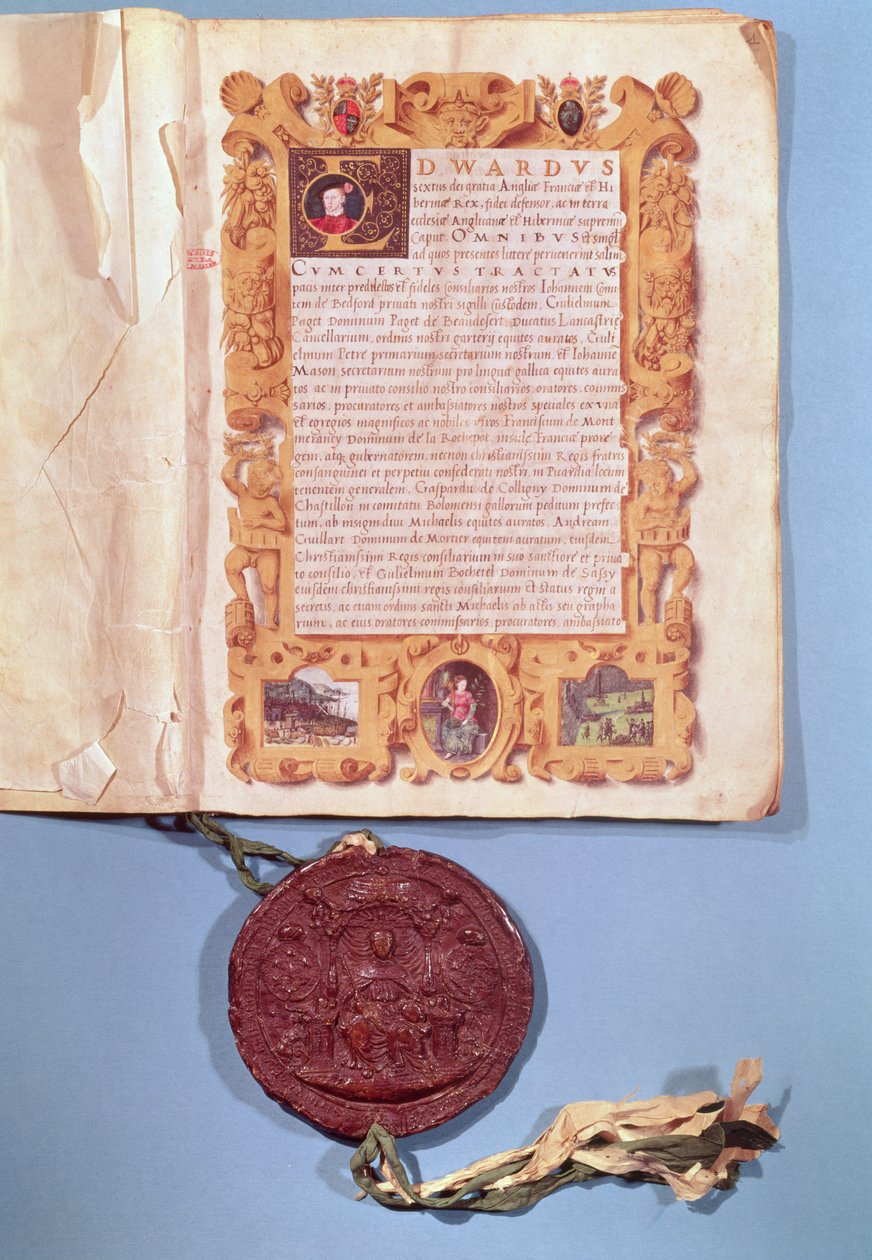 EDWARDVS
sextus dei gratia Angliæ Franciæ et Hi
berniæ Rex, fidei defensor, ac in terra
ecclesiæ Anglicanæ et Hibernicæ supremū
Caput. OMNIBVS et singłis
ad quos presentes litteræ peruenerint salūtē
CVM CERTVS TRACTATVS
pacis inter predilectos et fideles consiliarios nostros Iohannem Comi
tem de Bedford priuati nostri sigilli custodem, Gulielmum
Paget Dominum Paget de Beaudesert, Ducatus Lancastrie
Cancellarium, ordinis nostri garterij equites auratos, Guli
elmum Petre primarium secretarium nostrum, et Iohannē
Mason secretarium nostrum pro lingua gallica equites aura
tos, ac in priuato consilio nostro consiliarios, oratores, commis
sarios, procuratores et ambassiatores nostros speciales ex vna
et egregios magnificos ac nobiles viros Franciscum de Mont
merancy Dominum de la Rochepot, insule Franciæ prore
gem, atq; gubernatorem, necnon christianissimi Regis fratris
consanguinei et perpetui confederati nostri, in Picardia locum
tenentem generalem, Gaspardū de Colligny Dominum de
Chastillon in comitatu Boloniensi gallorum peditum prefec
tum, ab insigni diui Michaelis equites auratos, Andream
Guillart Dominum de Mortier equitem auratum, eiusdem
Christianissimi Regis consiliarium in suo sanctiore et priua
to consilio, et Gulielmum Bochetel Dominum de Sassy
eiusdem christianissimi regis consiliarium et status regni a
secretis, ac etiam ordinis sancti Michaelis ab actis seu grapha
rium, ac eius oratores commissarios, procuratores, ambassiato